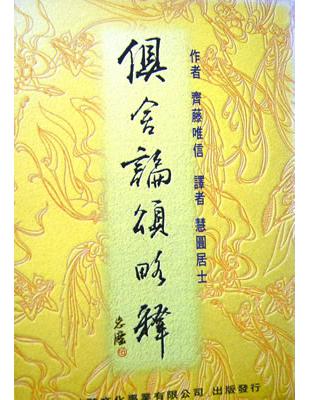 作者 齊藤唯信 譯者 慧圓居士
俱舍論頌略釋
文化事業有限公司 出版發行